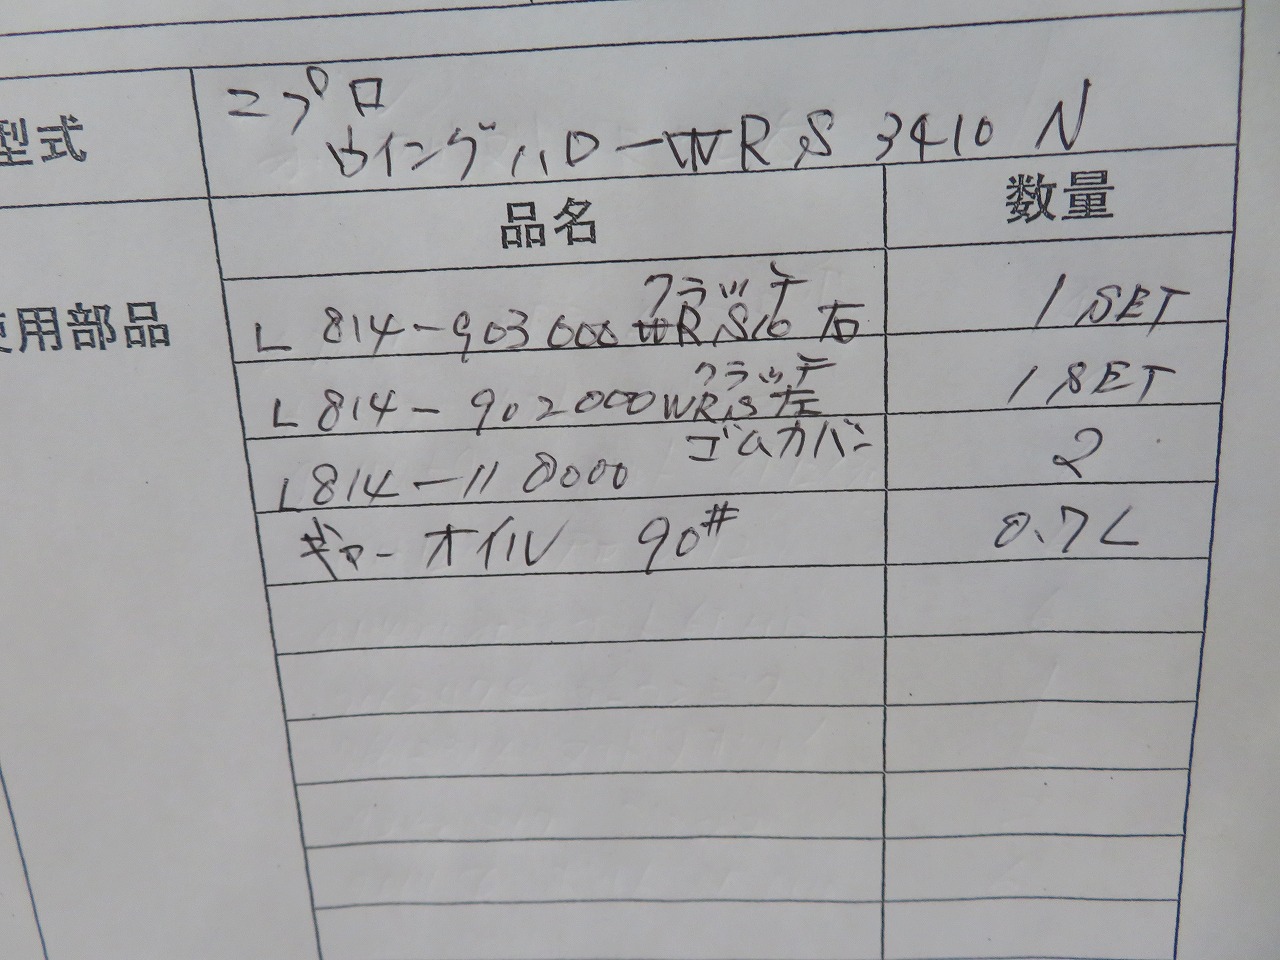 型式
ニプロ
ウイングハローWRS3410N
品名 数量
使用部品
L814-903000 クラッチ WRS10 右 1SET
L814-902000 クラッチ WRS左 1SET
L814-118000 ゴムカバー 2
ギヤーオイル 90# 0.7L